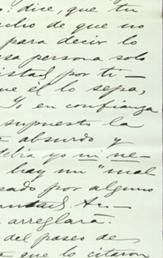 : dice, que tu
cho de que no
para decir lo
sa persona solo
istad por ti-
ue él lo sepa,
Y en confianza
supuesto la
absurdo y
yo mi ne-
hay un "mal
eado por alguno
arreglará.
del paseo de
a que lo citaron